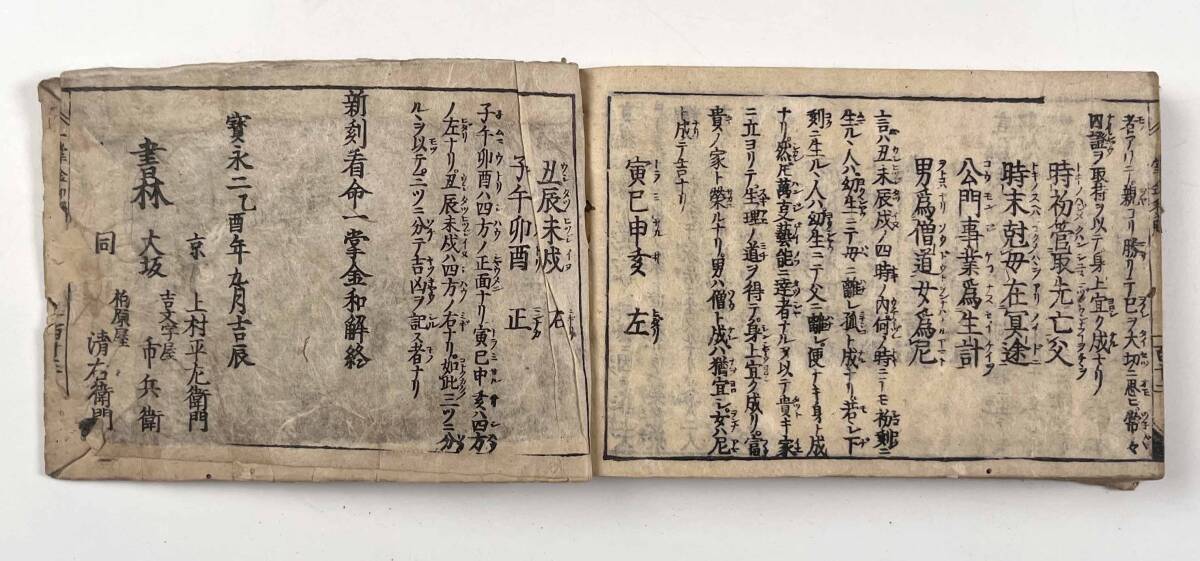 者アリテ親ヨリ勝リテ巳ヲ大切ニ思ヒ常々
四證ヲ取持ヲ以テ身上宜ク成ナリ
時初管取先亡父
時末尅毋在冥途
公門事業為生計
男爲僧道女爲尼
言ハ丑未辰戌ノ四時ノ内何ノ時ニテモ初刻ニ
生ルヽ人ハ幼生ニテ毋ニ離レ孤ト成ナリ若シ下
刻ニ生ルヽ人ハ幼生ニテ父ニ離レ便ナキ身ト成
ナリ然𪜈萬事藝能ニ達者ナルヲ以テ貴キ家
ニ立ヨリテ生理ノ道ヲ得テ身上宜ク成リ富
貴ノ家ト榮ルナリ男ハ僧ト成ハ猶宜シ女ハ尼
ト成テ吉ナリ
寅巳申亥 左
丑辰未戌 右
子午卯酉 正
子午卯酉ハ四方ノ正面ナリ寅巳申亥ハ四方
ノ左ナリ丑辰未戌ハ四方ノ右ナリ如此三ツニ分
ルヽヲ以テ三ツニ分テ吉凶ヲ記ス者ナリ
新刻看命一掌金和解終
寳永二乙酉年九月吉辰
京 上村平左衞門
書林 大坂 吉文字屋 市兵衛
同 柏原屋 清右衞門